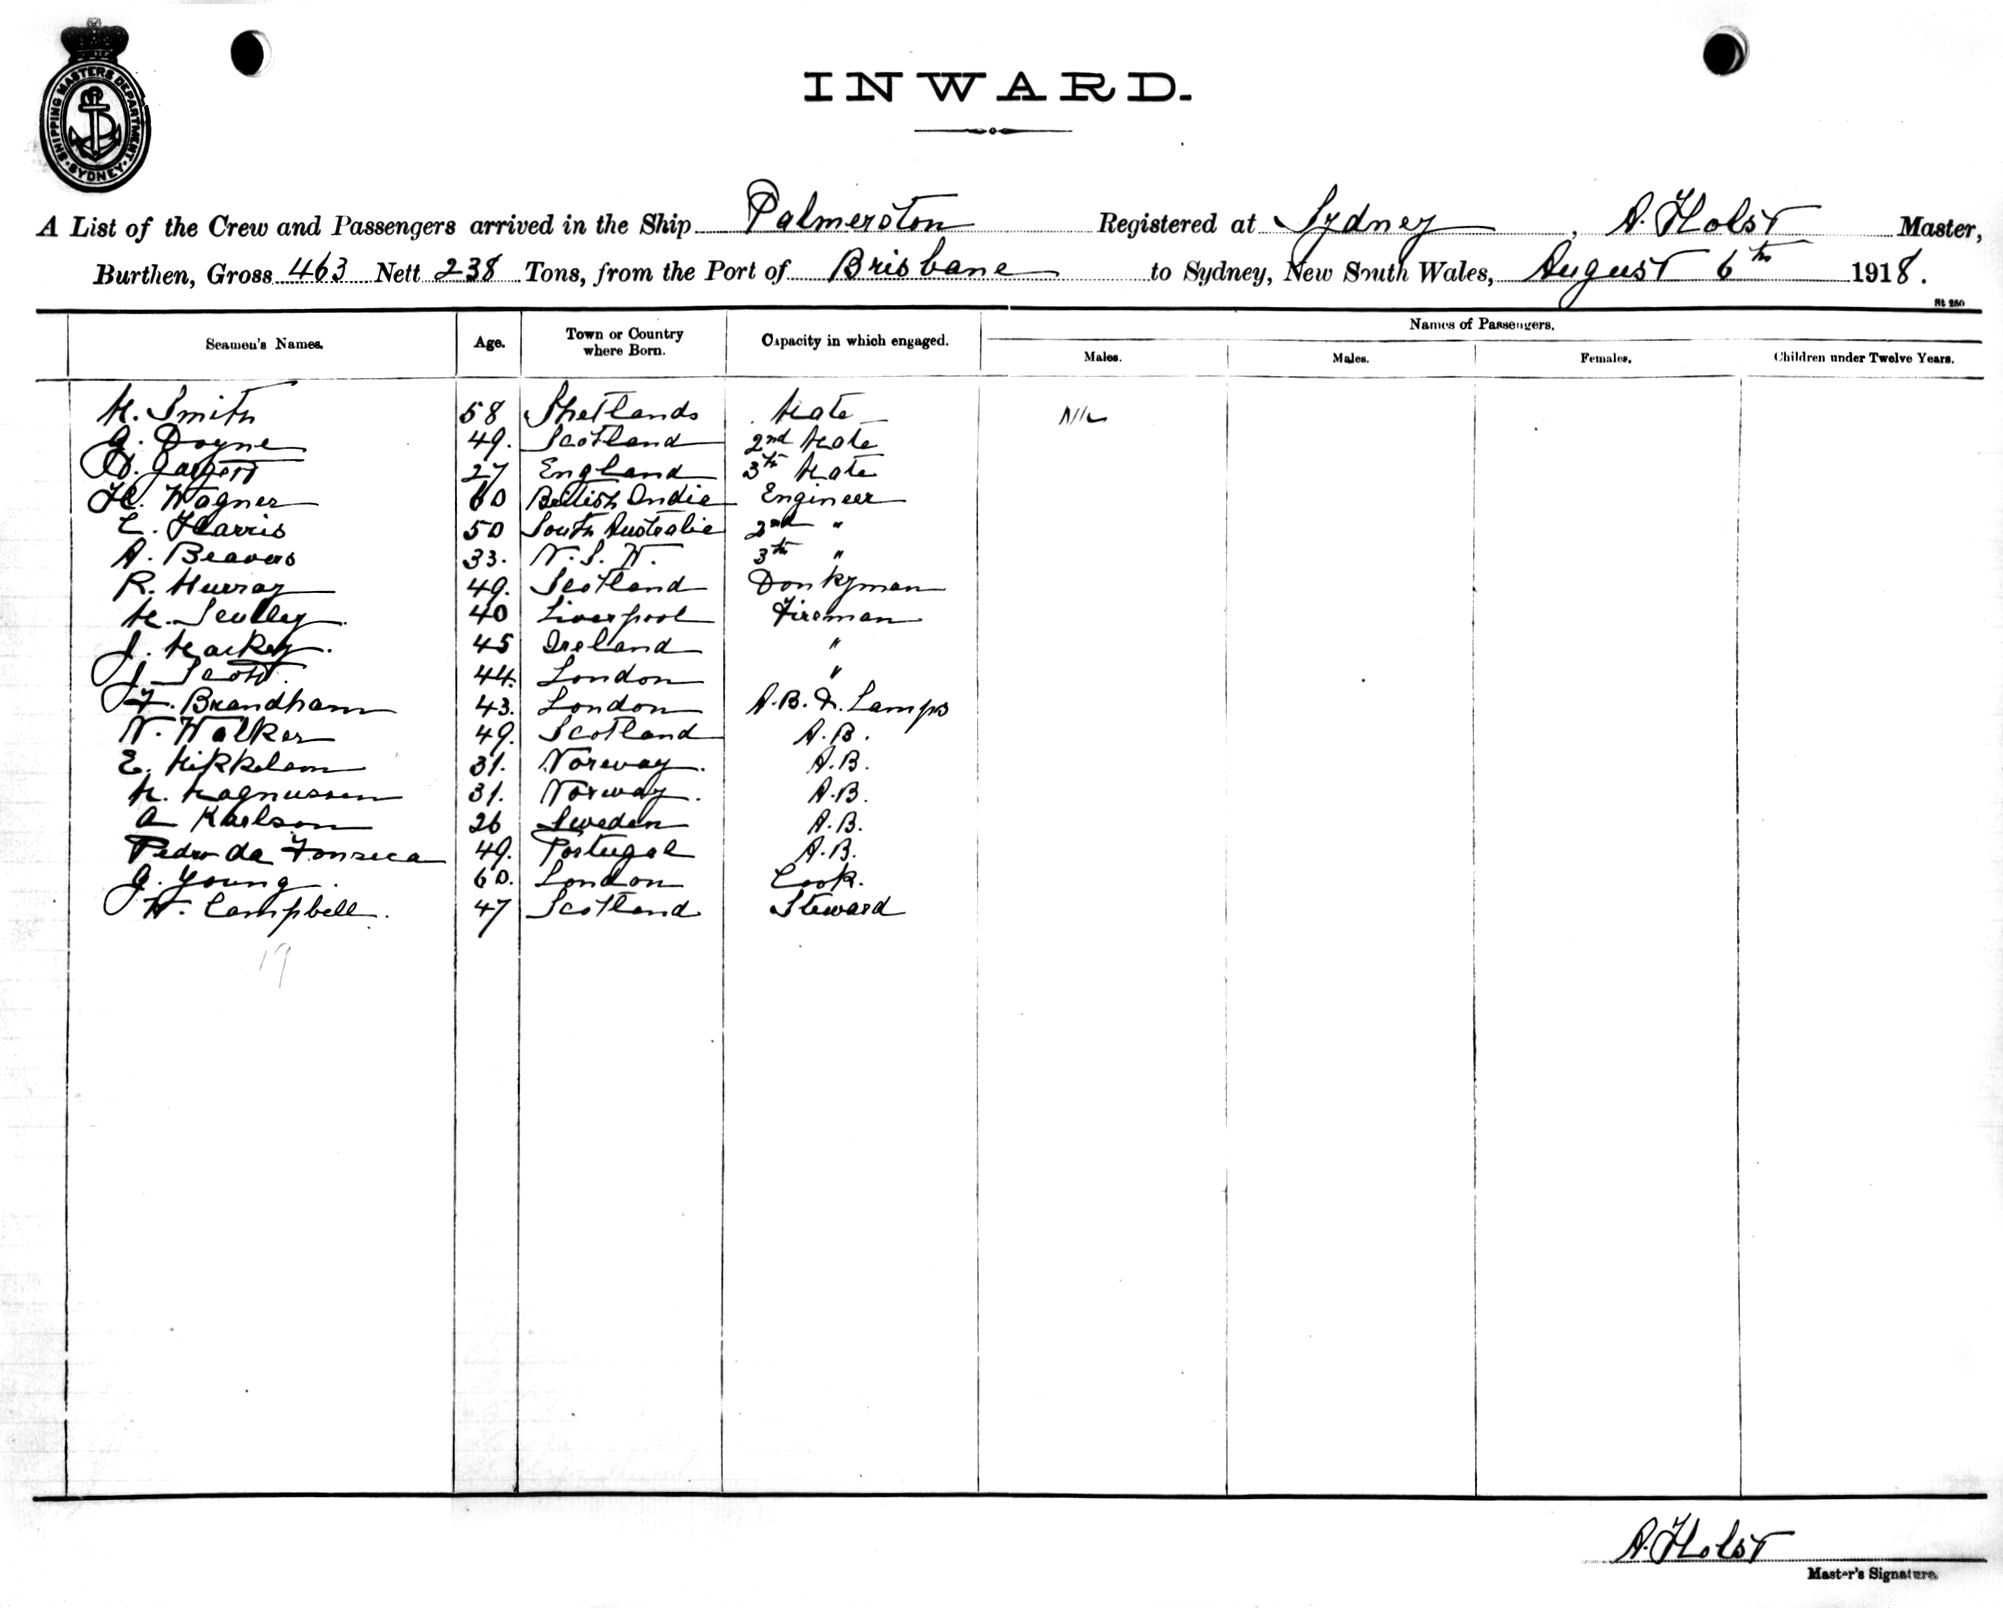 SHIPPING MASTERS DEPARTMENT · SYDNEY ·
INWARD.
A List of the Crew and Passengers arrived in the Ship Palmerston Registered at Sydney, A. Holst Master,
Burthen, Gross 463 Nett 238 Tons, from the Port of Brisbane to Sydney, New South Wales, August 6th 1918.
St 250
Seamen's Names. Age. Town or Country where Born. Capacity in which engaged. Names of Passengers.
Males. Males. Females. Children under Twelve Years.
M. Smith 58 Shetlands Mate Nil
G. Doyne 49. Scotland 2nd Mate
27 England 3th Mate
H. Wagner 60 British India Engineer
C. Harris 50 South Australia 2nd "
A. Beavers 33. N.S.W. 3th "
R. Murray 49. Scotland Donkyman
M. Sculley 40 Liverpool Fireman
J. Mackey. 45 Ireland "
J. Scott. 44. London "
F. Brandham 43. London A.B. & Lamps
W. Walker 49. Scotland A.B.
E. Mikkelsen 31. Norway. A.B.
M. Magnussen 31. Norway. A.B.
A Karlson 26 Sweden A.B.
Pedro da Fonseca 49. Portugal A.B.
G. Young. 60. London Cook.
W. Campbell. 47 Scotland Steward
19
A. Holst
Master's Signature.